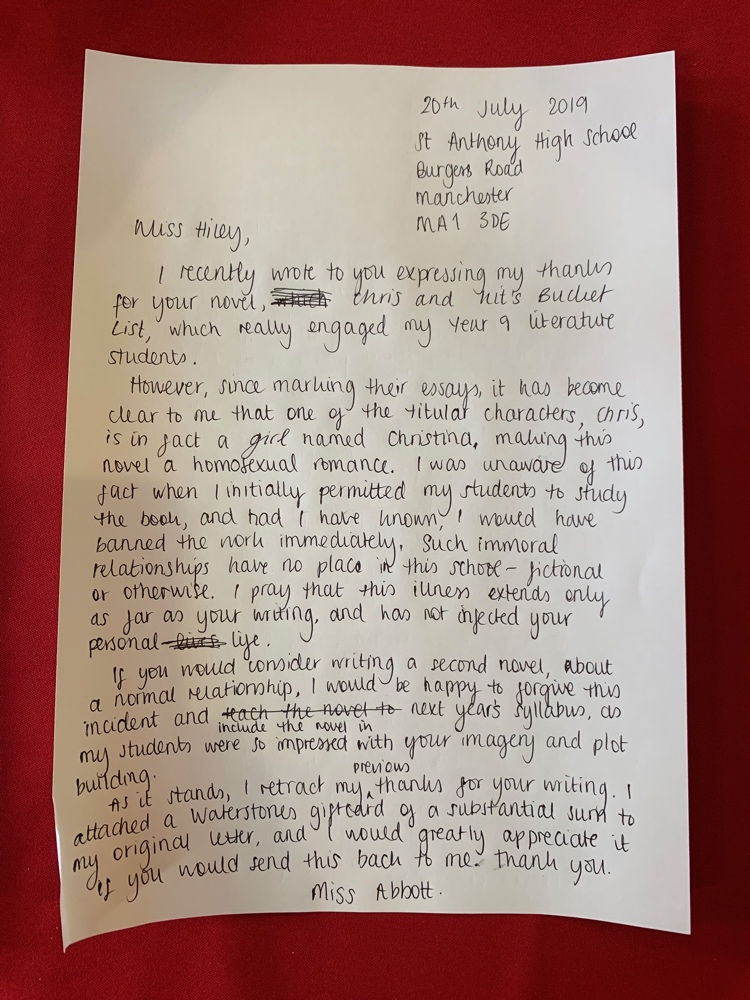 20th July 2019
St Anthony High School
Burgess Road
Manchester
MA1 3DE
Miss Hiley,
I recently wrote to you expressing my thanks
for your novel, which Chris and Kit's Bucket
List, which really engaged my Year 9 literature
students.
However, since marking their essays, it has become
clear to me that one of the titular characters, Chris,
is in fact a girl named Christina, making this
novel a homosexual romance. I was unaware of this
fact when I initially permitted my students to study
the book, and had I have known, I would have
banned the work immediately. Such immoral
relationships have no place in this school - fictional
or otherwise. I pray that this illness extends only
as far as your writing, and has not infected your
personal lives life.
If you would consider writing a second novel, about
a normal relationship, I would be happy to forgive this
incident and teach the novel to next year's syllabus, as
include the novel in
my students were so impressed with your imagery and plot
building.
previous
As it stands, I retract my thanks for your writing. I
attached a Waterstones giftcard of a substantial sum to
my original letter, and I would greatly appreciate it
if you would send this back to me. Thank you.
Miss Abbott.